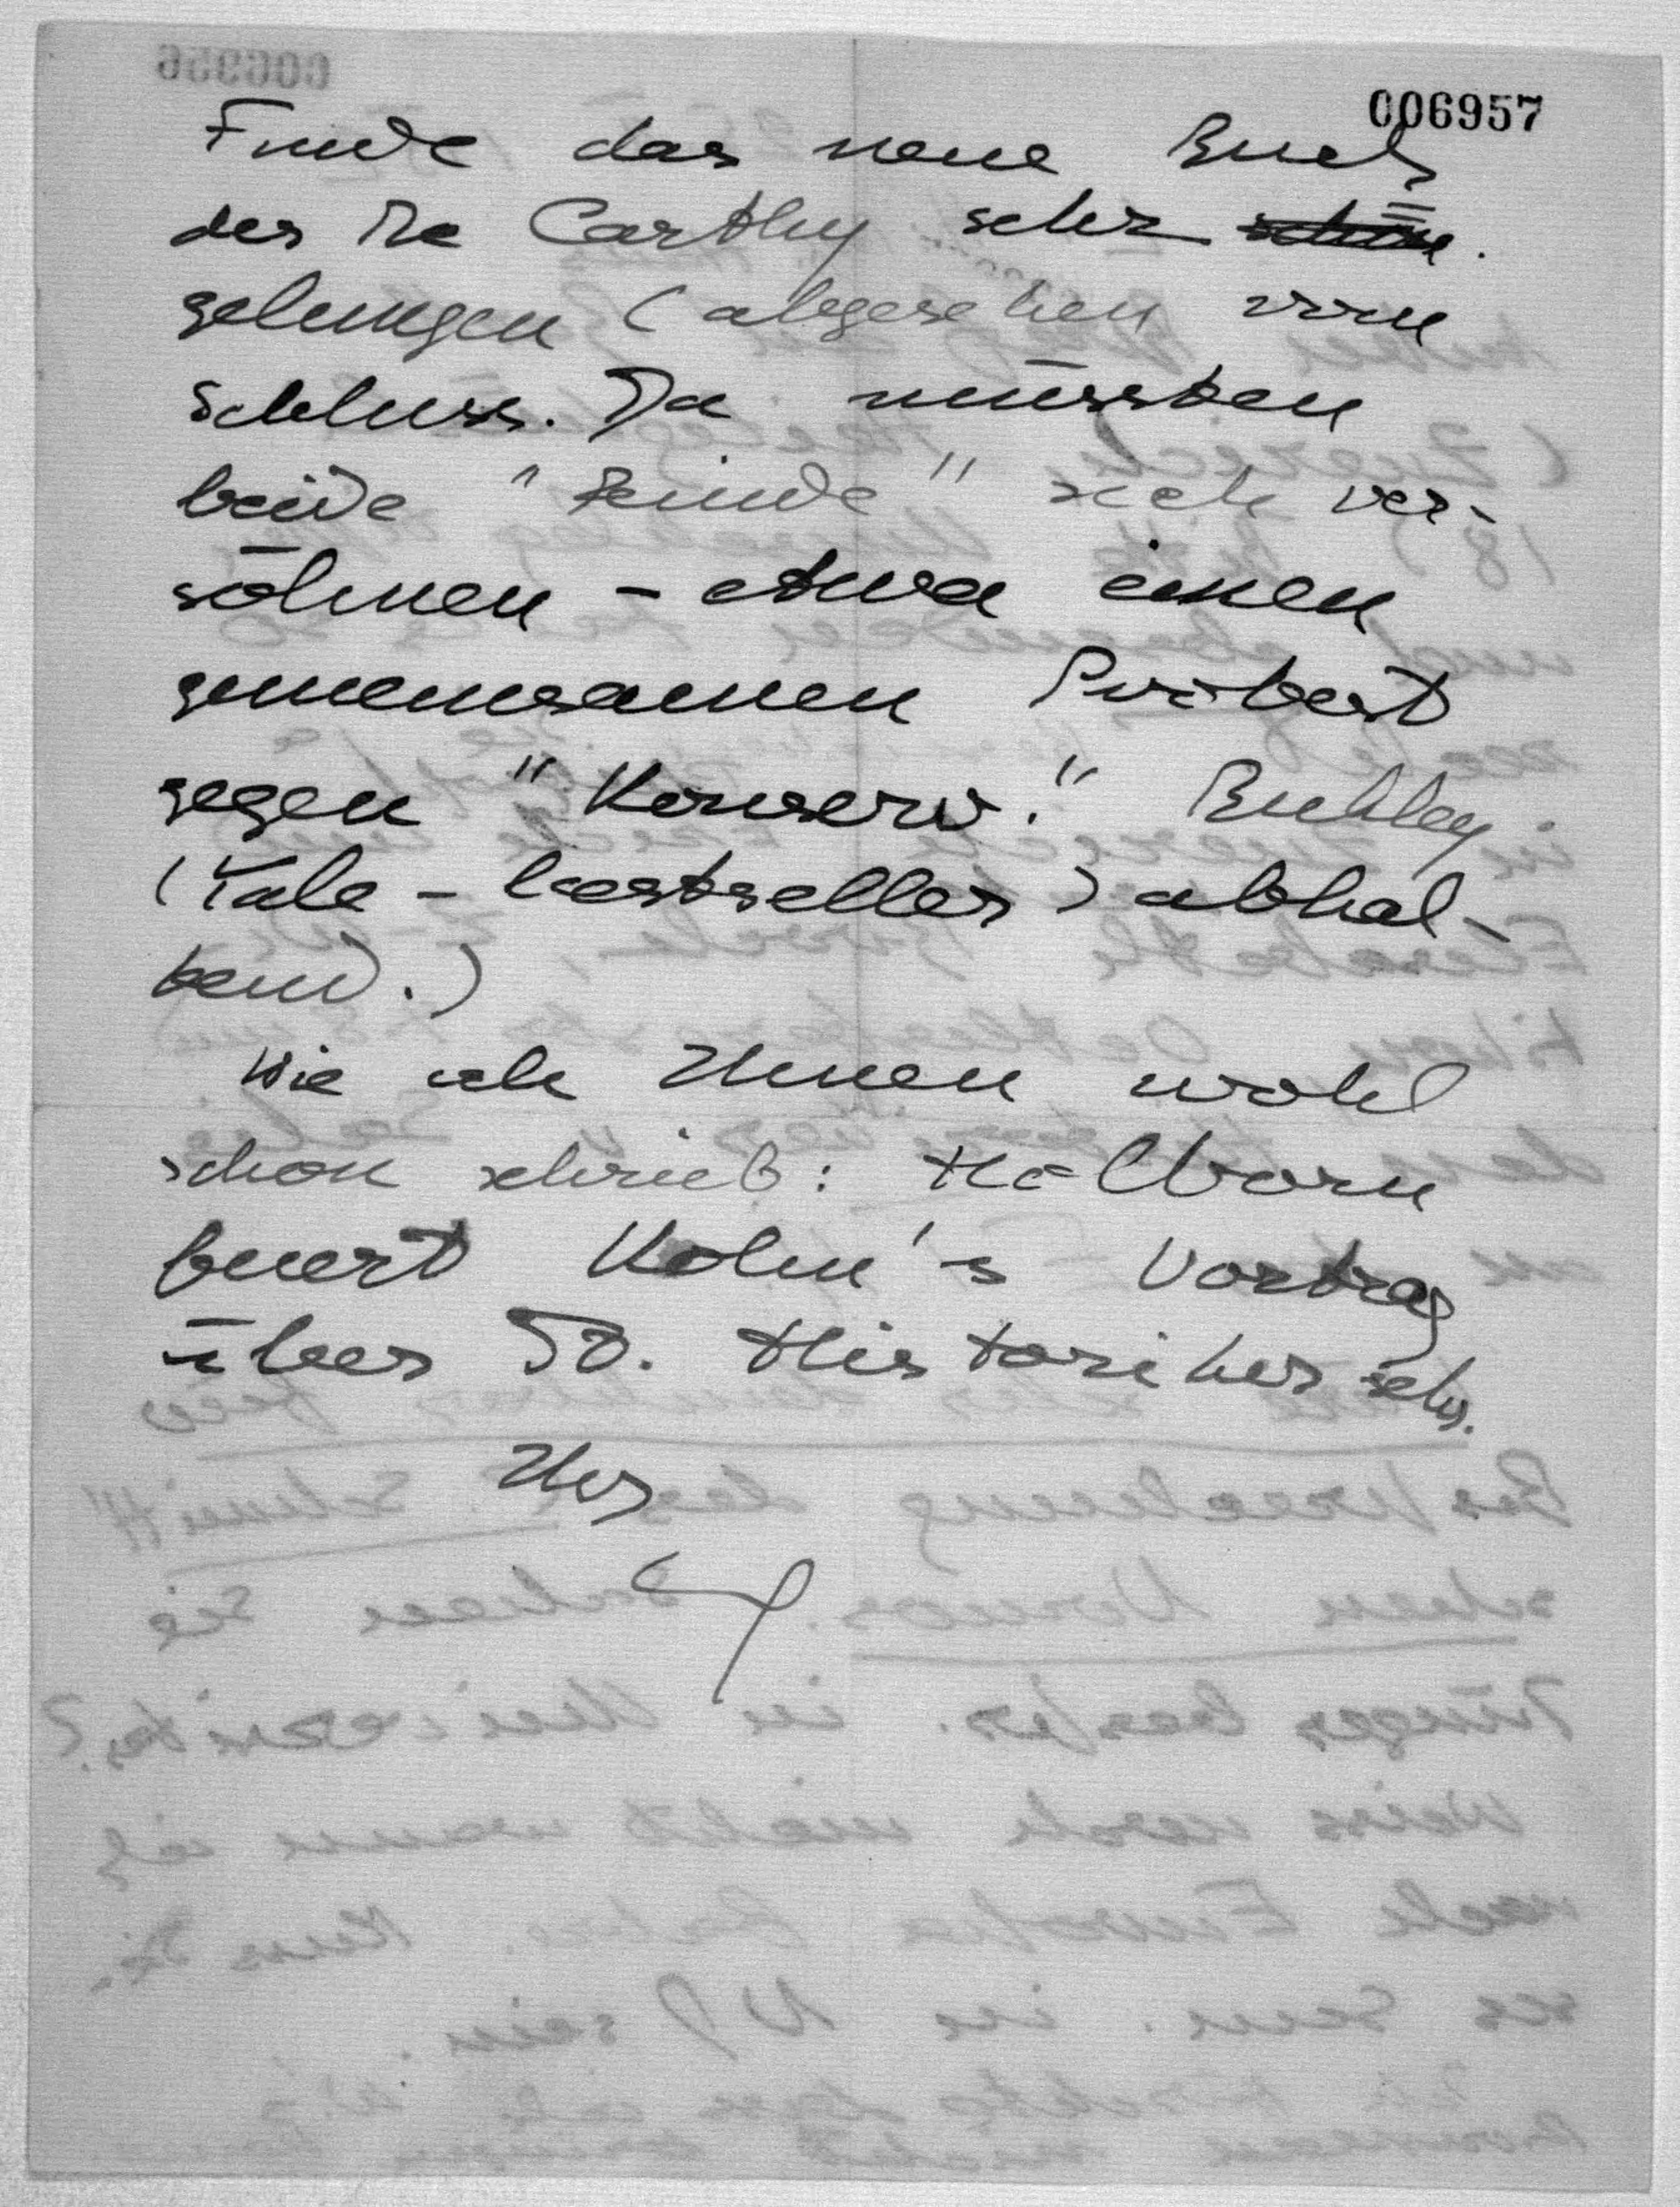 006957
Finde das neue Buch
der Mc Carthy sehr
gelungen (abgesehen vom
Schluss. Da müssten
beide "Feinde" sich ver-
söhnen - etwa einen
gemeinsamen
gegen "Konserv." Buckley
(Yale - bestseller) abhal-
tend.)
Wie ich Ihnen wohl
schon schrieb: Holborn
Kohn's Vortrag
über Dt. Historiker sehr.
Ihr